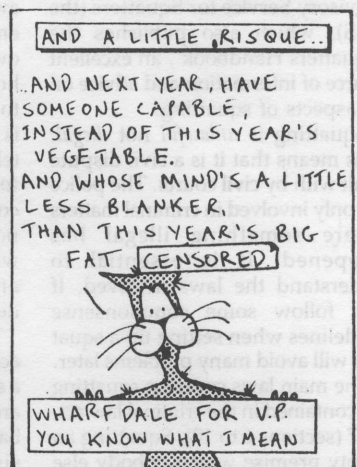 AND A LITTLE RISQUE..
..AND NEXT YEAR HAVE
SOMEONE CAPABLE,
INSTEAD OF THIS YEAR'S
VEGETABLE.
AND WHOSE MIND'S A LITTLE
LESS BLANKER
THAN THIS YEAR'S BIG
FAT CENSORED
WHARFDALE FOR V.P.
YOU KNOW WHAT I MEAN